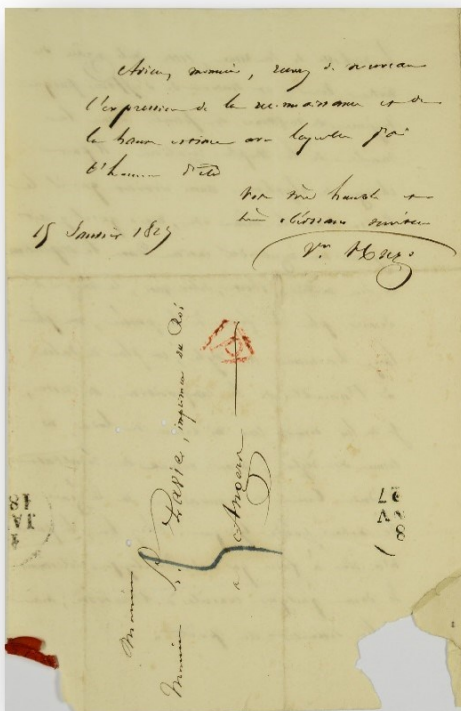 Adieu, monsieur, recevez de nouveau
l'expression de la reconnaissance et de
la haute estime avec laquelle j'ai
l'honneur d'être
Votre très humble et
très obéissant serviteur
Vor Hugo
15 Janvier 1827
Monsieur
Monsieur Pavie, imprimeur du Roi
à Angers